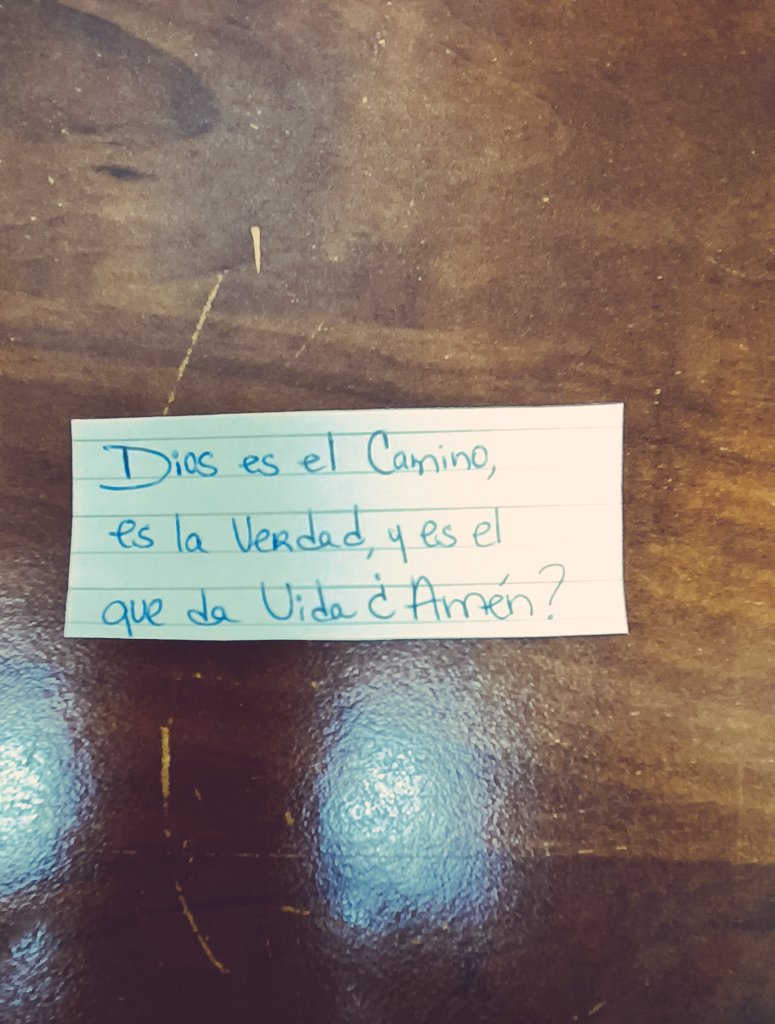 Dios es el Camino,
es la Verdad, y es el
que da Vida ¿Amén?